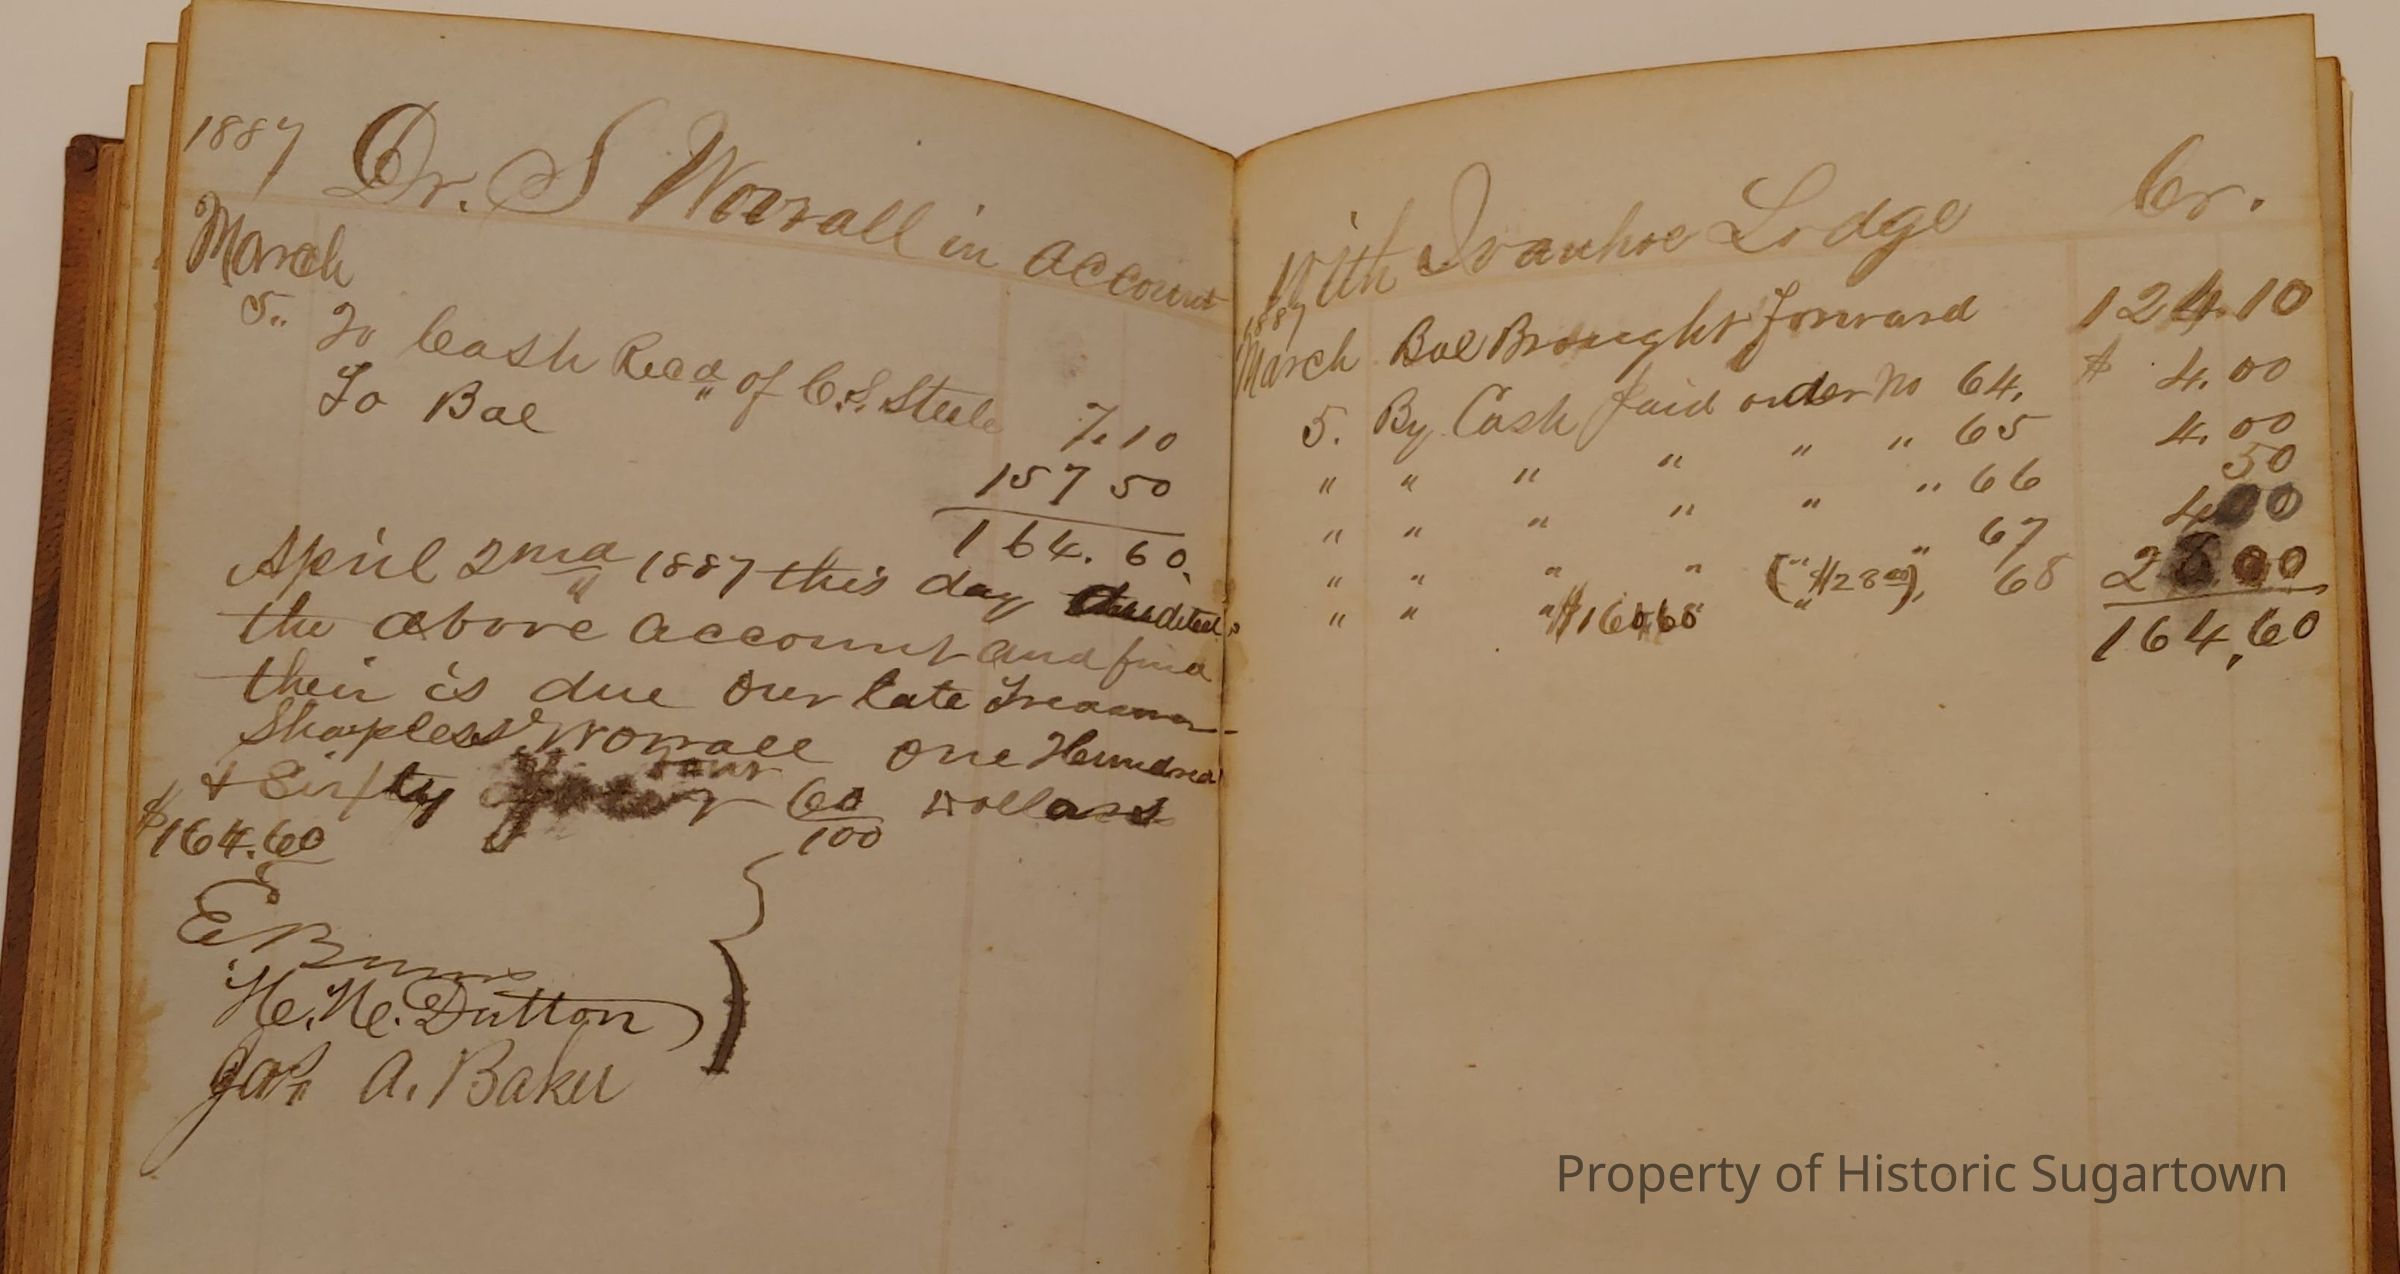 1887 Dr. S Worrall in account
March
5. To Cash Recd of C.S. Steele 7.10
To Bal 157 50
164.60
April 2nd 1887 this day audited
the above account and find
their is due our late Treasurer
Sharpless Worrall One Hundred
& Sixty four 60/100 Dollars
$164.60
E. Burns
H. H. Dutton
Jos. A. Baker
With Ivanhoe Lodge Cr.
1887
March Bal Brought Forward 124.10
5. By Cash paid order No 64. $ 4.00
" " " " " " 65 4.00
" " " " " " 66 50
" " " " " 67 4.00
" " " $160.60 (" $28 00) 68 28.00
164.60
Property of Historic Sugartown